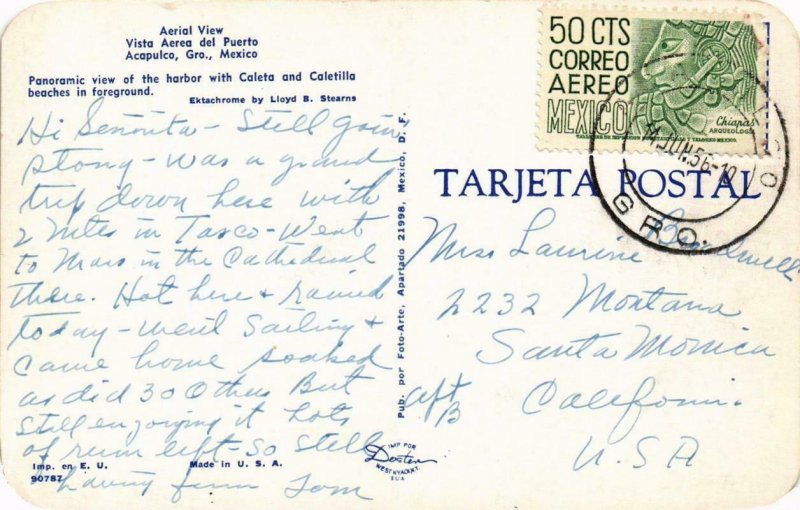 Aerial View
Vista Aerea del Puerto
Acapulco, Gro., Mexico
Panoramic view of the harbor with Caleta and Caletilla
beaches in foreground.
Ektachrome by Lloyd B. Stearns
Hi Señorita - Still goin
strong - was a grand
trip down here with
2 nites in Tasco - Went
to Mass in the Cathederal
there. Hot here + rained
today - went sailing +
came home soaked
as did 30 others But
still enjoying it lots
of rum left - so still
having fun Tom
Imp. en E. U.
Made in U. S. A.
90787
Pub. por Foto-Arte, Apartado 21998, Mexico, D. F.
IMP POR
Dexter
WEST NYACK N.Y.
EUA
50 CTS
CORREO
AEREO
MEXICO
Chiapas
ARQUEOLOGIA
14 JUN 56
GRO.
TARJETA POSTAL
Miss Laurine
2232 Montana
Santa Monica
Apt B
Californi.
U.S.A